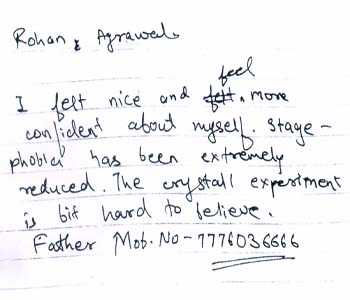 Rohan Agrawal
feel
I felt nice and felt more
confident about myself. Stage-
phobia has been extremely
reduced. The crystall experiment
is bit hard to believe.
Father Mob. No - 7776036666